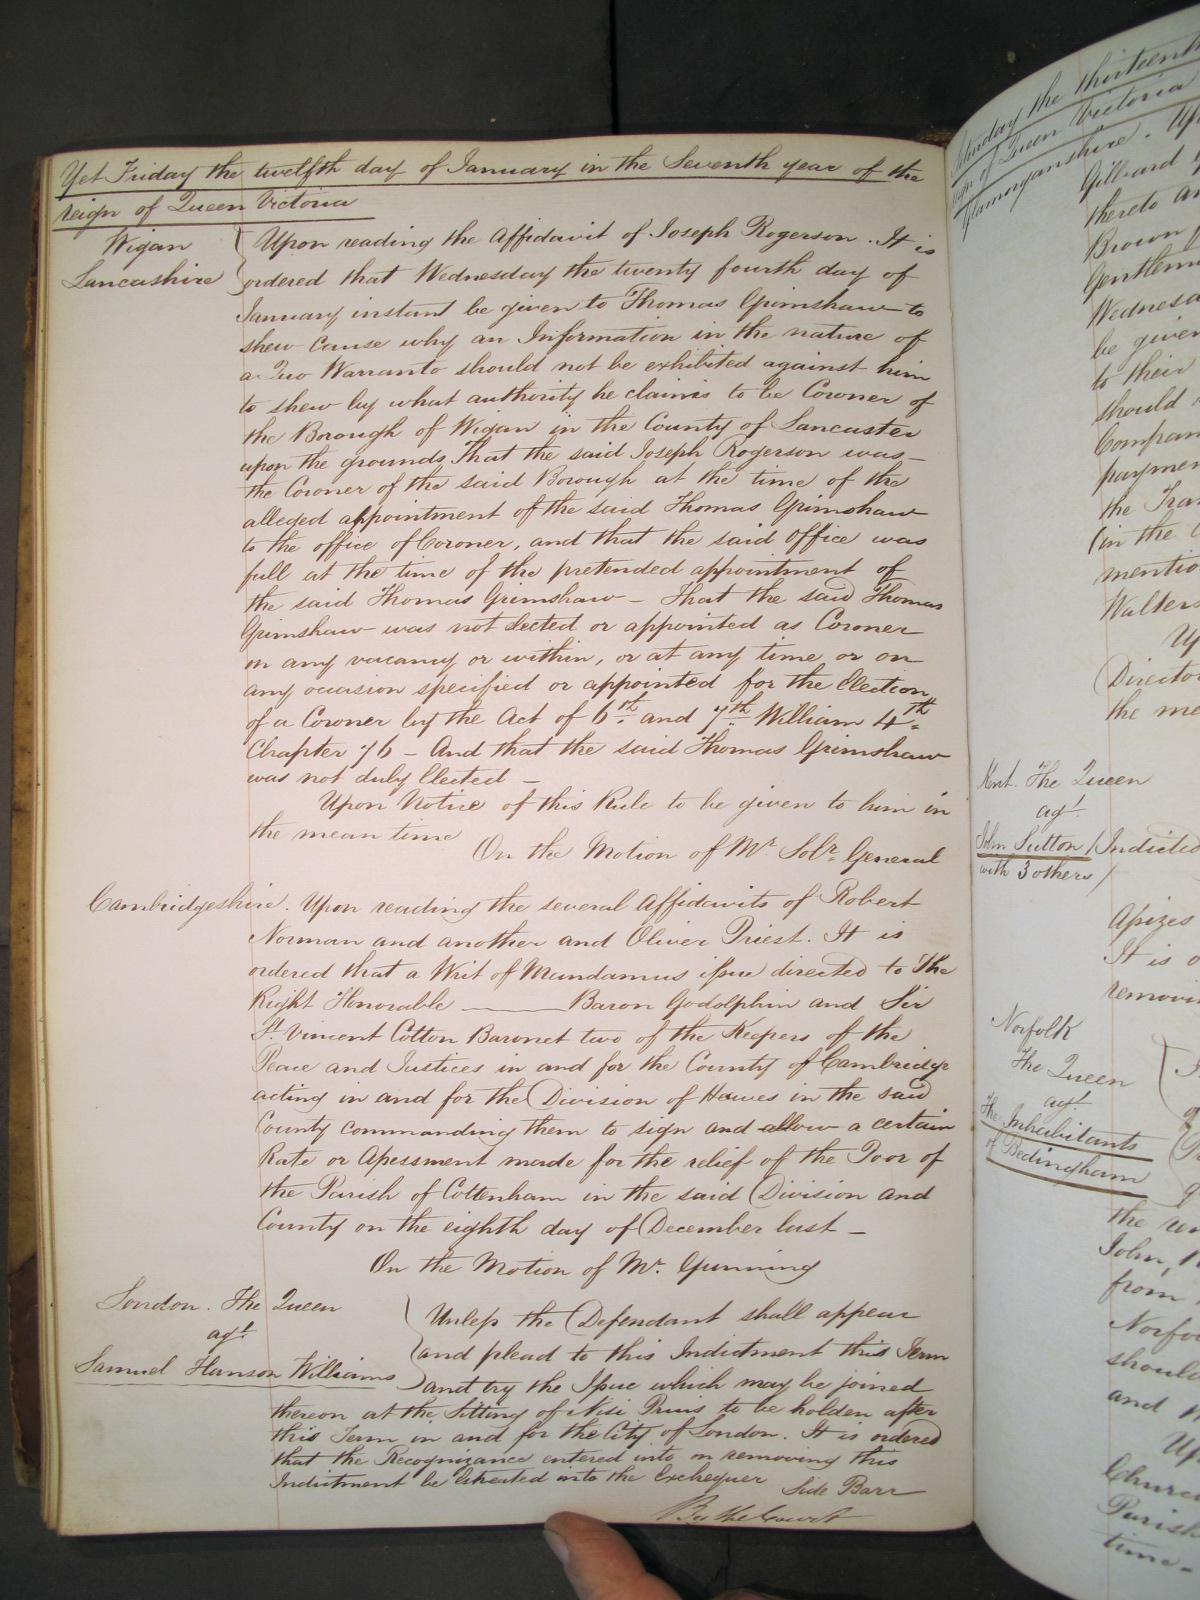 Yet Friday the twelfth day of January in the Seventh year of the
reign of Queen Victoria
Wigan
Lancashire
Upon reading the Affidavit of Joseph Rogerson. It is
ordered that Wednesday the twenty fourth day of
January instant be given to Thomas Grimshaw to
shew cause why an Information in the nature of
a Quo Warranto should not be exhibited against him
to shew by what authority he claims to be Coroner of
the Borough of Wigan in the County of Lancaster
upon the grounds That the said Joseph Rogerson was
the Coroner of the said Borough at the time of the
alleged appointment of the said Thomas Grimshaw
to the office of Coroner, and that the said office was
full at the time of the pretended appointment of
the said Thomas Grimshaw – that the said Thomas
Grimshaw was not elected or appointed as Coroner
on any vacancy or within, or at any time or on
any occasion specified or appointed for the Election
of a Coroner by the Act of 6th. and 7th. William 4th.
Chapter 76 – And that the said Thomas Grimshaw
was not duly Elected –
Upon Notice of this Rule to be given to him in
the mean time
On the Motion of Mr. Solr. General
Cambridgeshire. Upon reading the several Affidavits of Robert
Norman and another and Oliver Priest. It is
ordered that a Writ of Mandamus issue directed to The
Right Honorable ——— Baron Godolphin and Sir
St. Vincent Cotton Baronet two of the Keepers of the
Peace and Justices in and for the County of Cambridge
acting in and for the Division of in the said
County commanding them to sign and allow a certain
Rate or Assessment made for the relief of the Poor of
the Parish of Cottenham in the said Division and
County on the eighth day of December last –
On the Motion of Mr. Gunning
London. The Queen
agt.
Samuel Hanson Williams
Unless the Defendant shall appear
and plead to this Indictment this Term
and try the Issue which may be joined
thereon at the Sitting of Nisi Prius to be holden after
this Term in and for the City of London. It is ordered
that the Recognizance entered into on removing this
Indictment be Estreated into the Exchequer Side Barr
By the Court
the thirteenth
of Queen Victoria
Glamorganshire.
Gilbard
thereto an
Brown
Gentlem
Wednesd
be given
to their
should
Compan
paymen
the Tra
(in the
mentio
Walters
Up
Director
the me
Knt. The Queen
agt.
John Sutton
with 3 others
Indicted
Assizes
It is o
removin
Norfolk
The Queen
agt.
The Inhabitants
of Bedingham
the
John,
from
Norfo
should
and
Up
Churc
Parish
time –